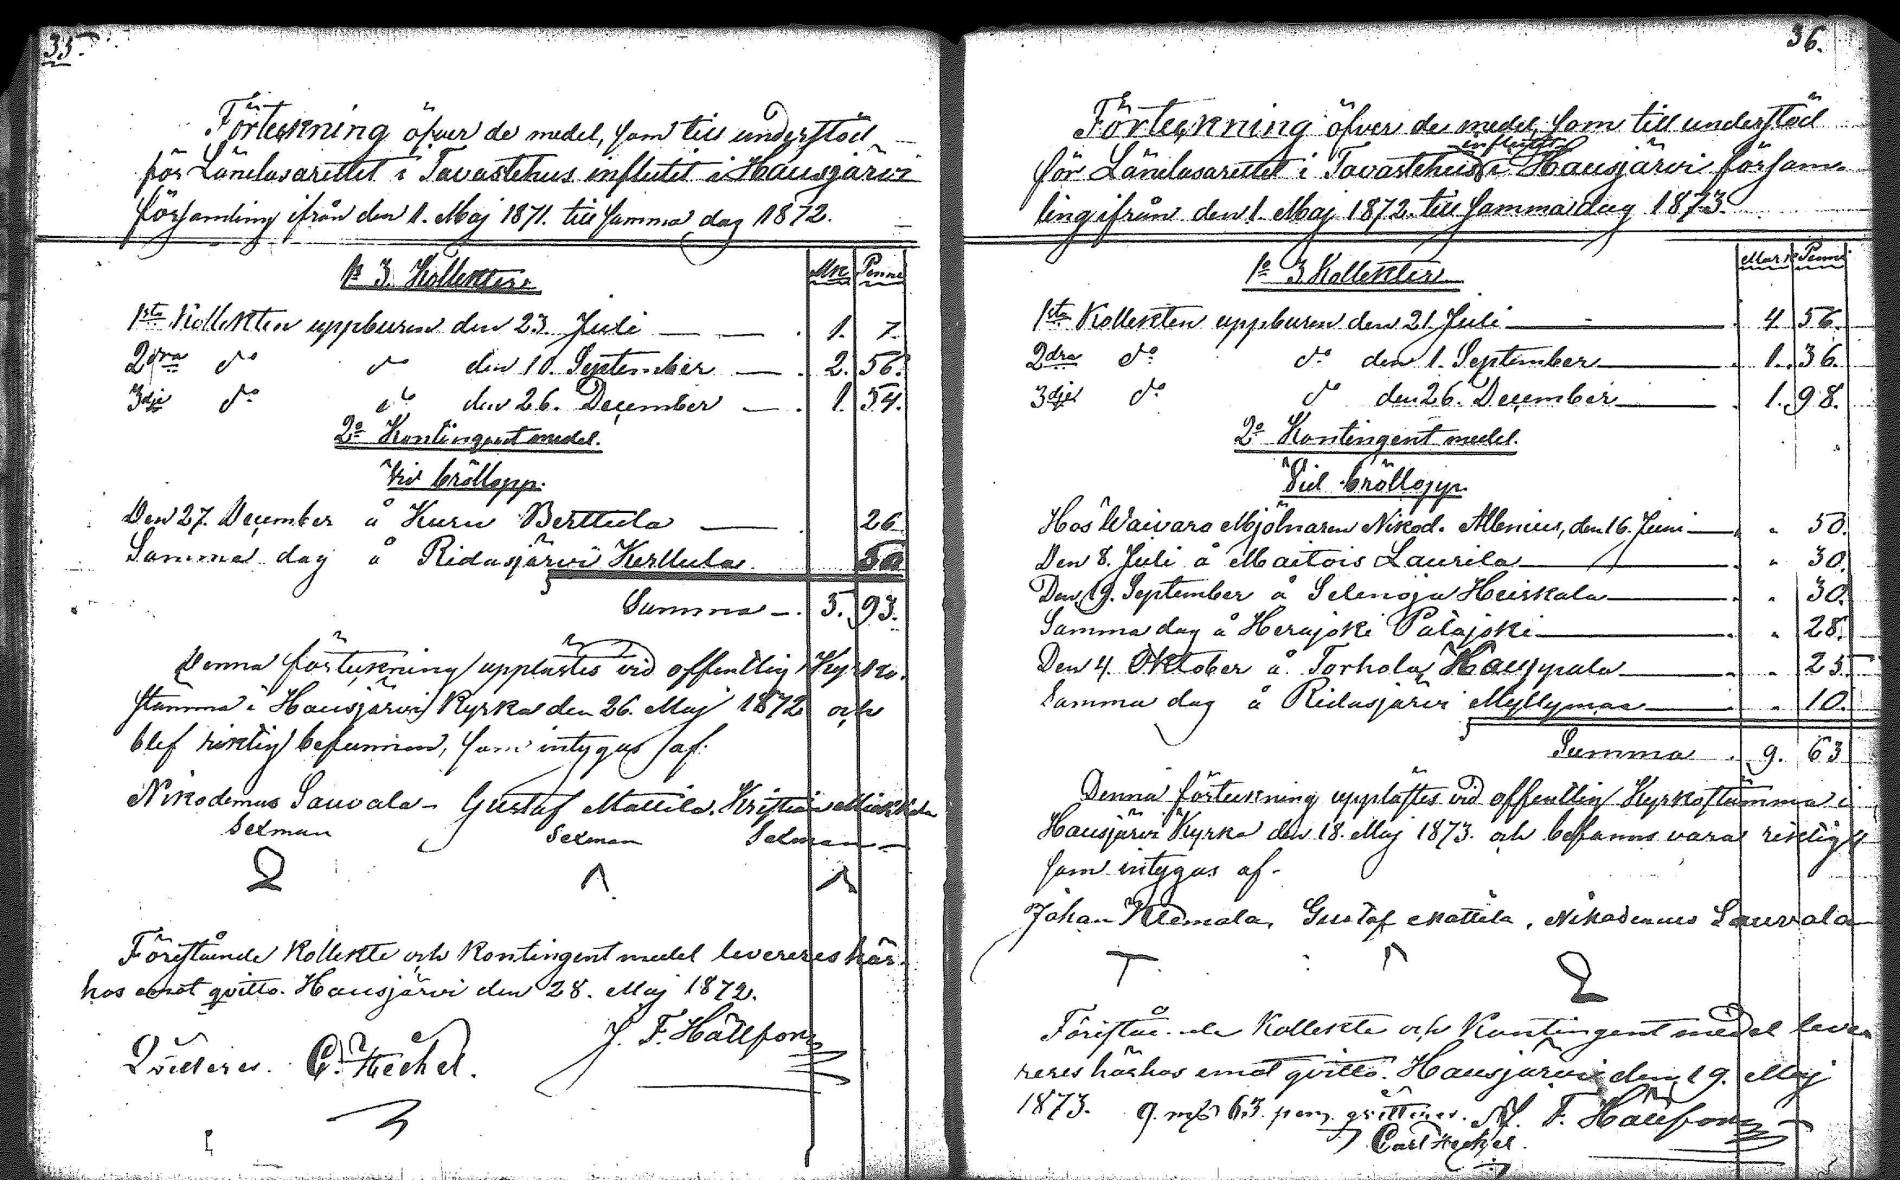 35.
Förteckning öfver de medel, som till understöd
för Länelasarettet i Tavastehus influtit i Hausjärvi
församling ifrån den 1. Maj 1871. till samma dag 1872.
1o 3. Kollekter. Mk Penni
1sta Kollekten uppburen den 23. Juli 1. 7.
2dra do do den 10. September 2. 56.
3dje do do den 26. December 1. 54.
2o Kontingent medel.
Vid bröllopp.
Den 27. December å Kuru Berttula 26
Samma dag å Ridasjärvi Kerttula 50
Summa 5. 93.
Denna förteckning upplästes vid offentlig Kyrko-
stämma i Hausjärvi Kyrka den 26. Maj 1872 och
blef riktig befunnen, som intygas af.
Nikodemus Sauvala Gustaf Mattila. Kristian Mickkola
Sexman Sexman Sexman
Förestående Kollekte och Kontingent medel levereres här-
hos emot qvitto. Hausjärvi den 28. Maj 1872.
J. F. Hällfors
Qvitteres. C. Heckel.
36.
Förteckning öfver de medel, som till understöd
för Länelasarettet i Tavastehus influtit i Hausjärvi försam-
ling ifrån den 1. Maj 1872. till samma dag 1873.
1o 3 Kollekter Mark Penni
1sta Kollekten uppburen den 21. Juli 4 56.
2dra do do den 1. September 1. 36.
3dje do do den 26. December 1. 98.
2o Kontingent medel.
Vid bröllopp.
Hos Waivaro Mjölnaren Nikod. Allenius, den 16. Juni " 50.
Den 8. Juli å Maitois Laurila " 30.
Den 19. September å Selenoja Heiskala " 30.
Samma dag å Herajoki Palajoki " 28.
Den 4. Oktober å Torhola " 25
Samma dag å Ridasjärvi Myllymaa " 10.
Summa 9. 63
Denna förteckning upplästes vid offentlig Kyrkostämma i
Hausjärvi Kyrka den 18. Maj 1873. och befanns vara riktig
som intygas af.
Johan Klemola, Gustaf Mattila, Nikodemus Sauvala
Förestående Kollekte och Kontingent medel leve-
reres härhos emot qvitto. Hausjärvi den 19. Maj
1873. 9. mk 63. pen. qvitteres. F. Hällfors
Carl Heckel.